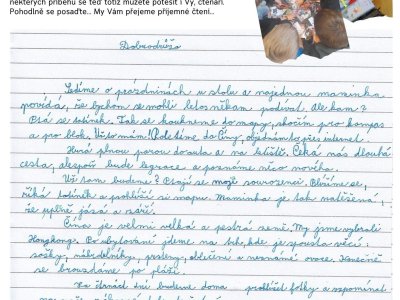 některých příběhů se teď totiž můžete potěšit i Vy, čtenáři.
Pohodlně se posaďte.. My Vám přejeme příjemné čtení...
Dobrodrůžo
Sedíme o prázdninách u stolu a najednou maminka
povídá, že bychom se mohli letos někam podívat. Ale kam?
Ptá se tatínek. Tak se koukneme do mapy, skočím pro kompas
a pro blok. Už to mám! Poletíme do Číny, objednáme to přes internet.
Hurá plnou parou do auta a na letiště. Čeká nás dlouhá
cesta, alespoň bude legrace a poznáme něco nového.
Už tam budeme? Ptají se moji sourozenci. Blížíme se,
říká tatínek a podívá si mapu. Maminka je tak natěšená,
že úplně jásá a září.
Čína je velmi velká a pestrá země. My jsme vybrali
Hongkong. Po ubytování jdeme na trh, kde je spousta věcí:
sošky, náhrdelníky, prsteny, oblečení a neznámé ovoce. Konečně
se brouzdáme po pláži.
Za čtrnáct dní budeme doma prohlížet fotky a vzpomínat